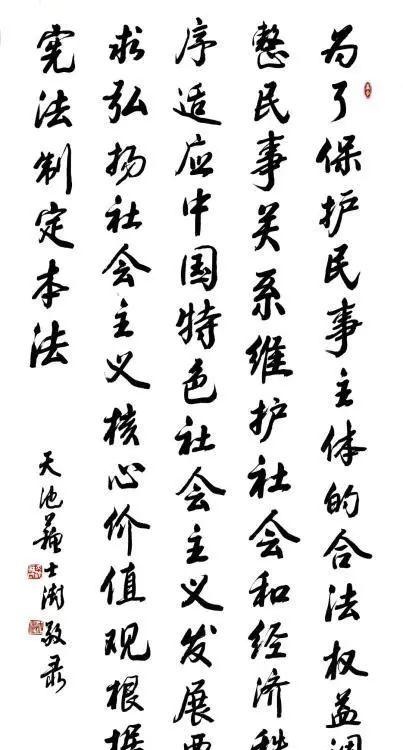 为了保护民事主体的合法权益调
整民事关系维护社会和经济秩
序适应中国特色社会主义发展要
求弘扬社会主义核心价值观根据
宪法制定本法
天池蘇士澍敬录